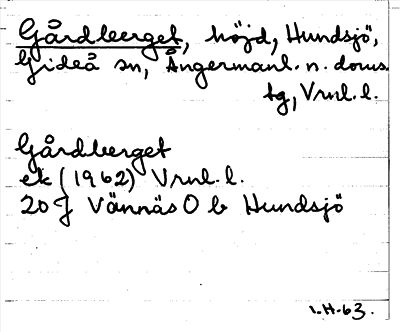 Gårdberget, höjd, Hundsjö,
Gideå sn, Ångermanl. n. doms.
tg, Vrnl. l.
Gårdberget
ek (1962) Vrnl. l.
20 J Vännäs O b Hundsjö
1.H.63.